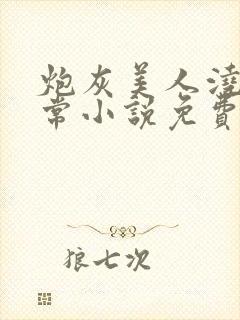 炮灰美人澆
常小說免費
狼七次